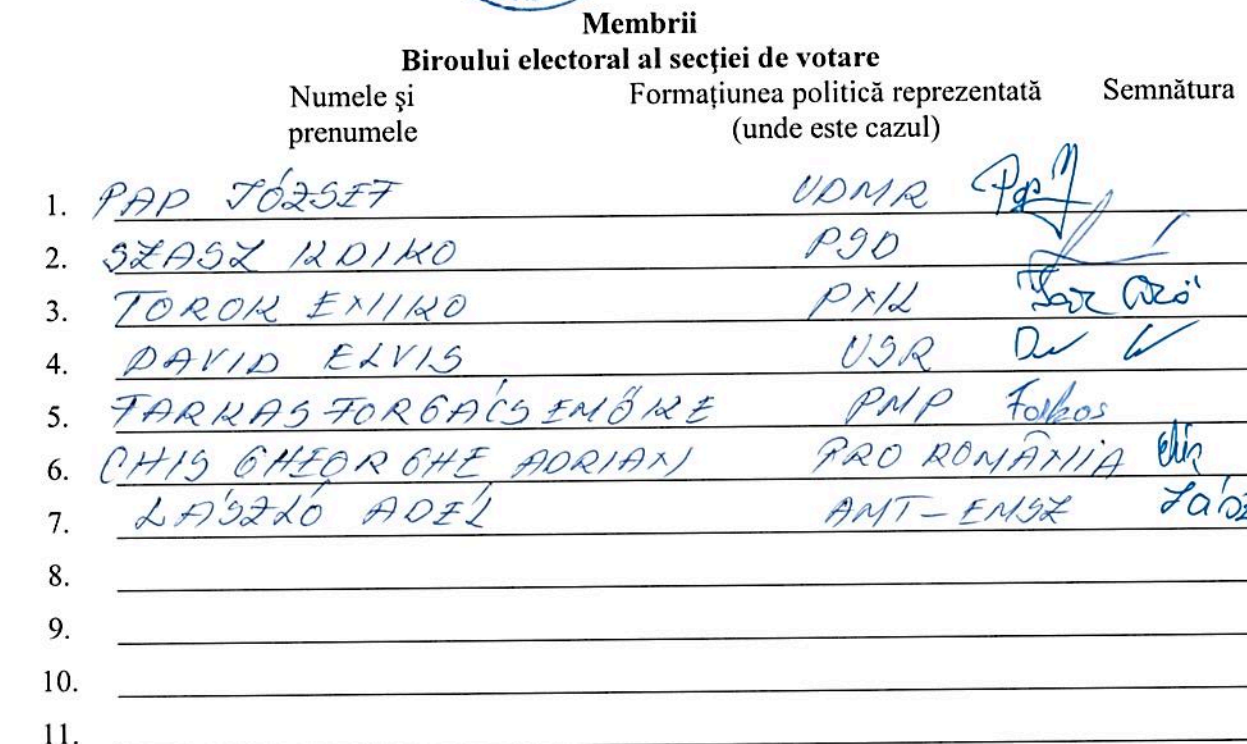 Membrii
Biroului electoral al secţiei de votare
Numele şi prenumele Formaţiunea politică reprezentată (unde este cazul) Semnătura
1. PAP JÓZSEF UDMR Pap
2. SZASZ ILDIKO PSD
3. TOROK ENIKO PNL
4. DAVID ELVIS USR
5. FARKAS FORGÁCS EMŐKE PMP Farkas
6. CHIS GHEORGHE ADRIAN PRO ROMÂNIA
7. LÁSZLÓ ADÉL AMT-EMSZ
8.
9.
10.
11.